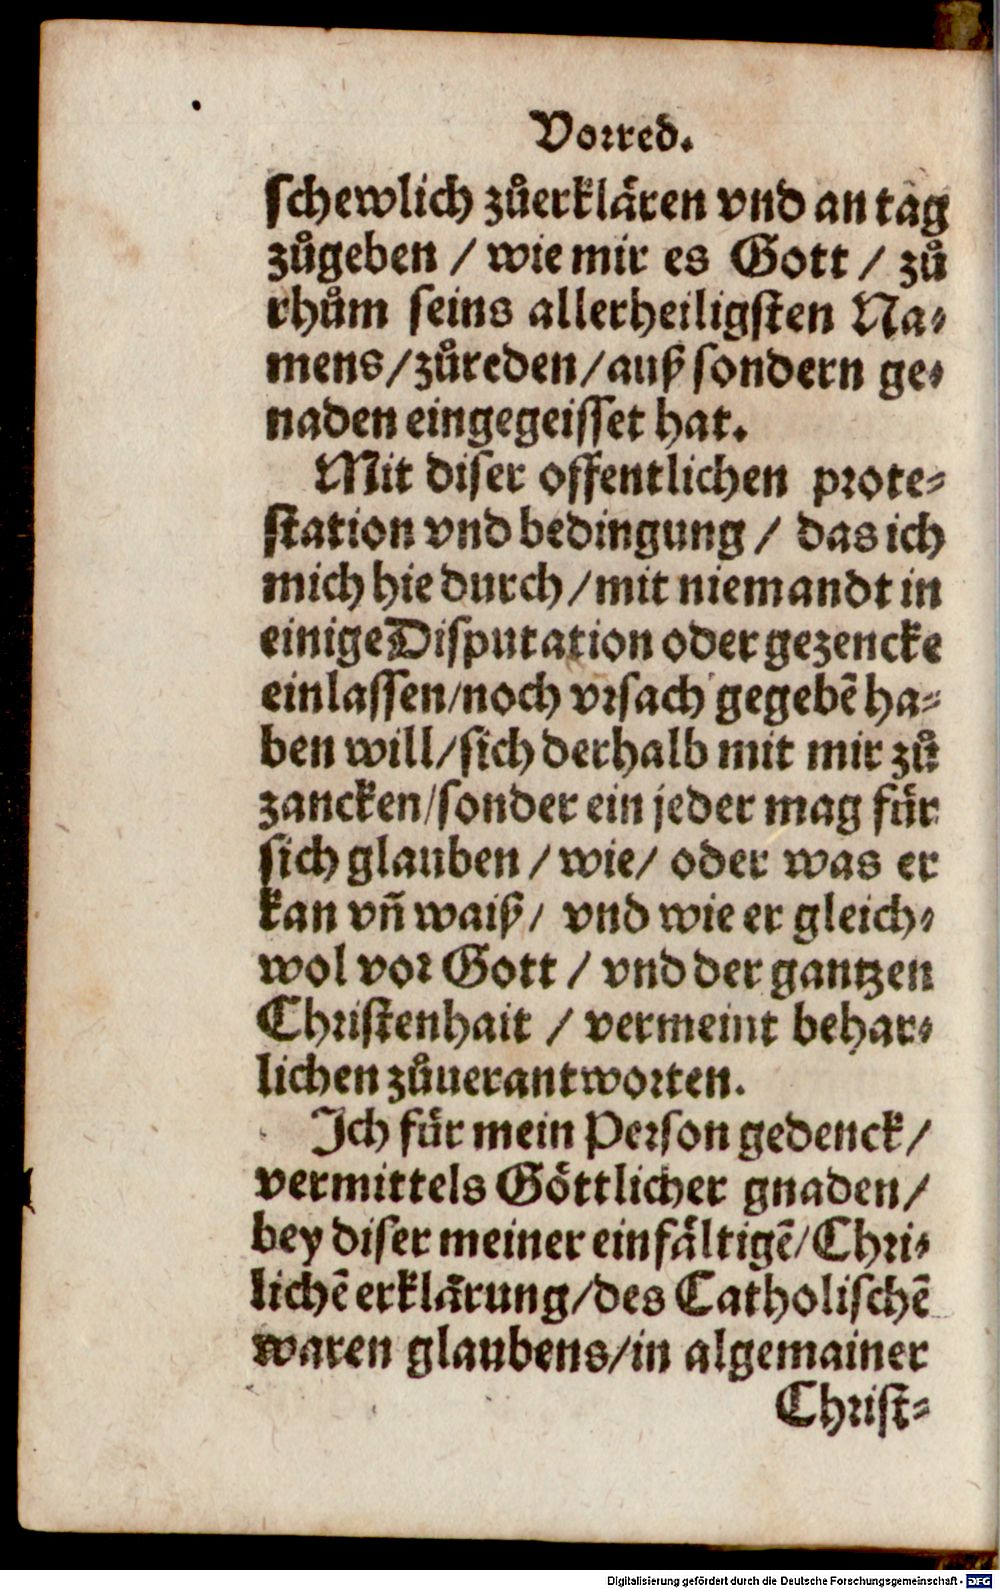 Vorred.
schewlich zůerklären vnd an tag
zůgeben / wie mir es Gott / zů
rhům seins allerheiligsten Na-
mens/zůreden/auß sondern ge-
naden eingegeisset hat.
Mit diser offentlichen prote-
station vnd bedingung / das ich
mich hie durch/mit niemandt in
einige Disputation oder gezencke
einlassen/noch vrsach gegebẽ ha-
ben will/sich derhalb mit mir zů
zancken/sonder ein jeder mag für
sich glauben / wie/ oder was er
kan vñ waiß/ vnd wie er gleich-
wol vor Gott / vnd der gantzen
Christenhait / vermeint behar-
lichen zůuerantworten.
Ich für mein Person gedenck/
vermittels Göttlicher gnaden/
bey diser meiner einfältigẽ/Chri-
lichẽ erklärung/des Catholischẽ
waren glaubens/in algemainer
Christ-
Digitalisierung gefördert durch die Deutsche Forschungsgemeinschaft - DFG